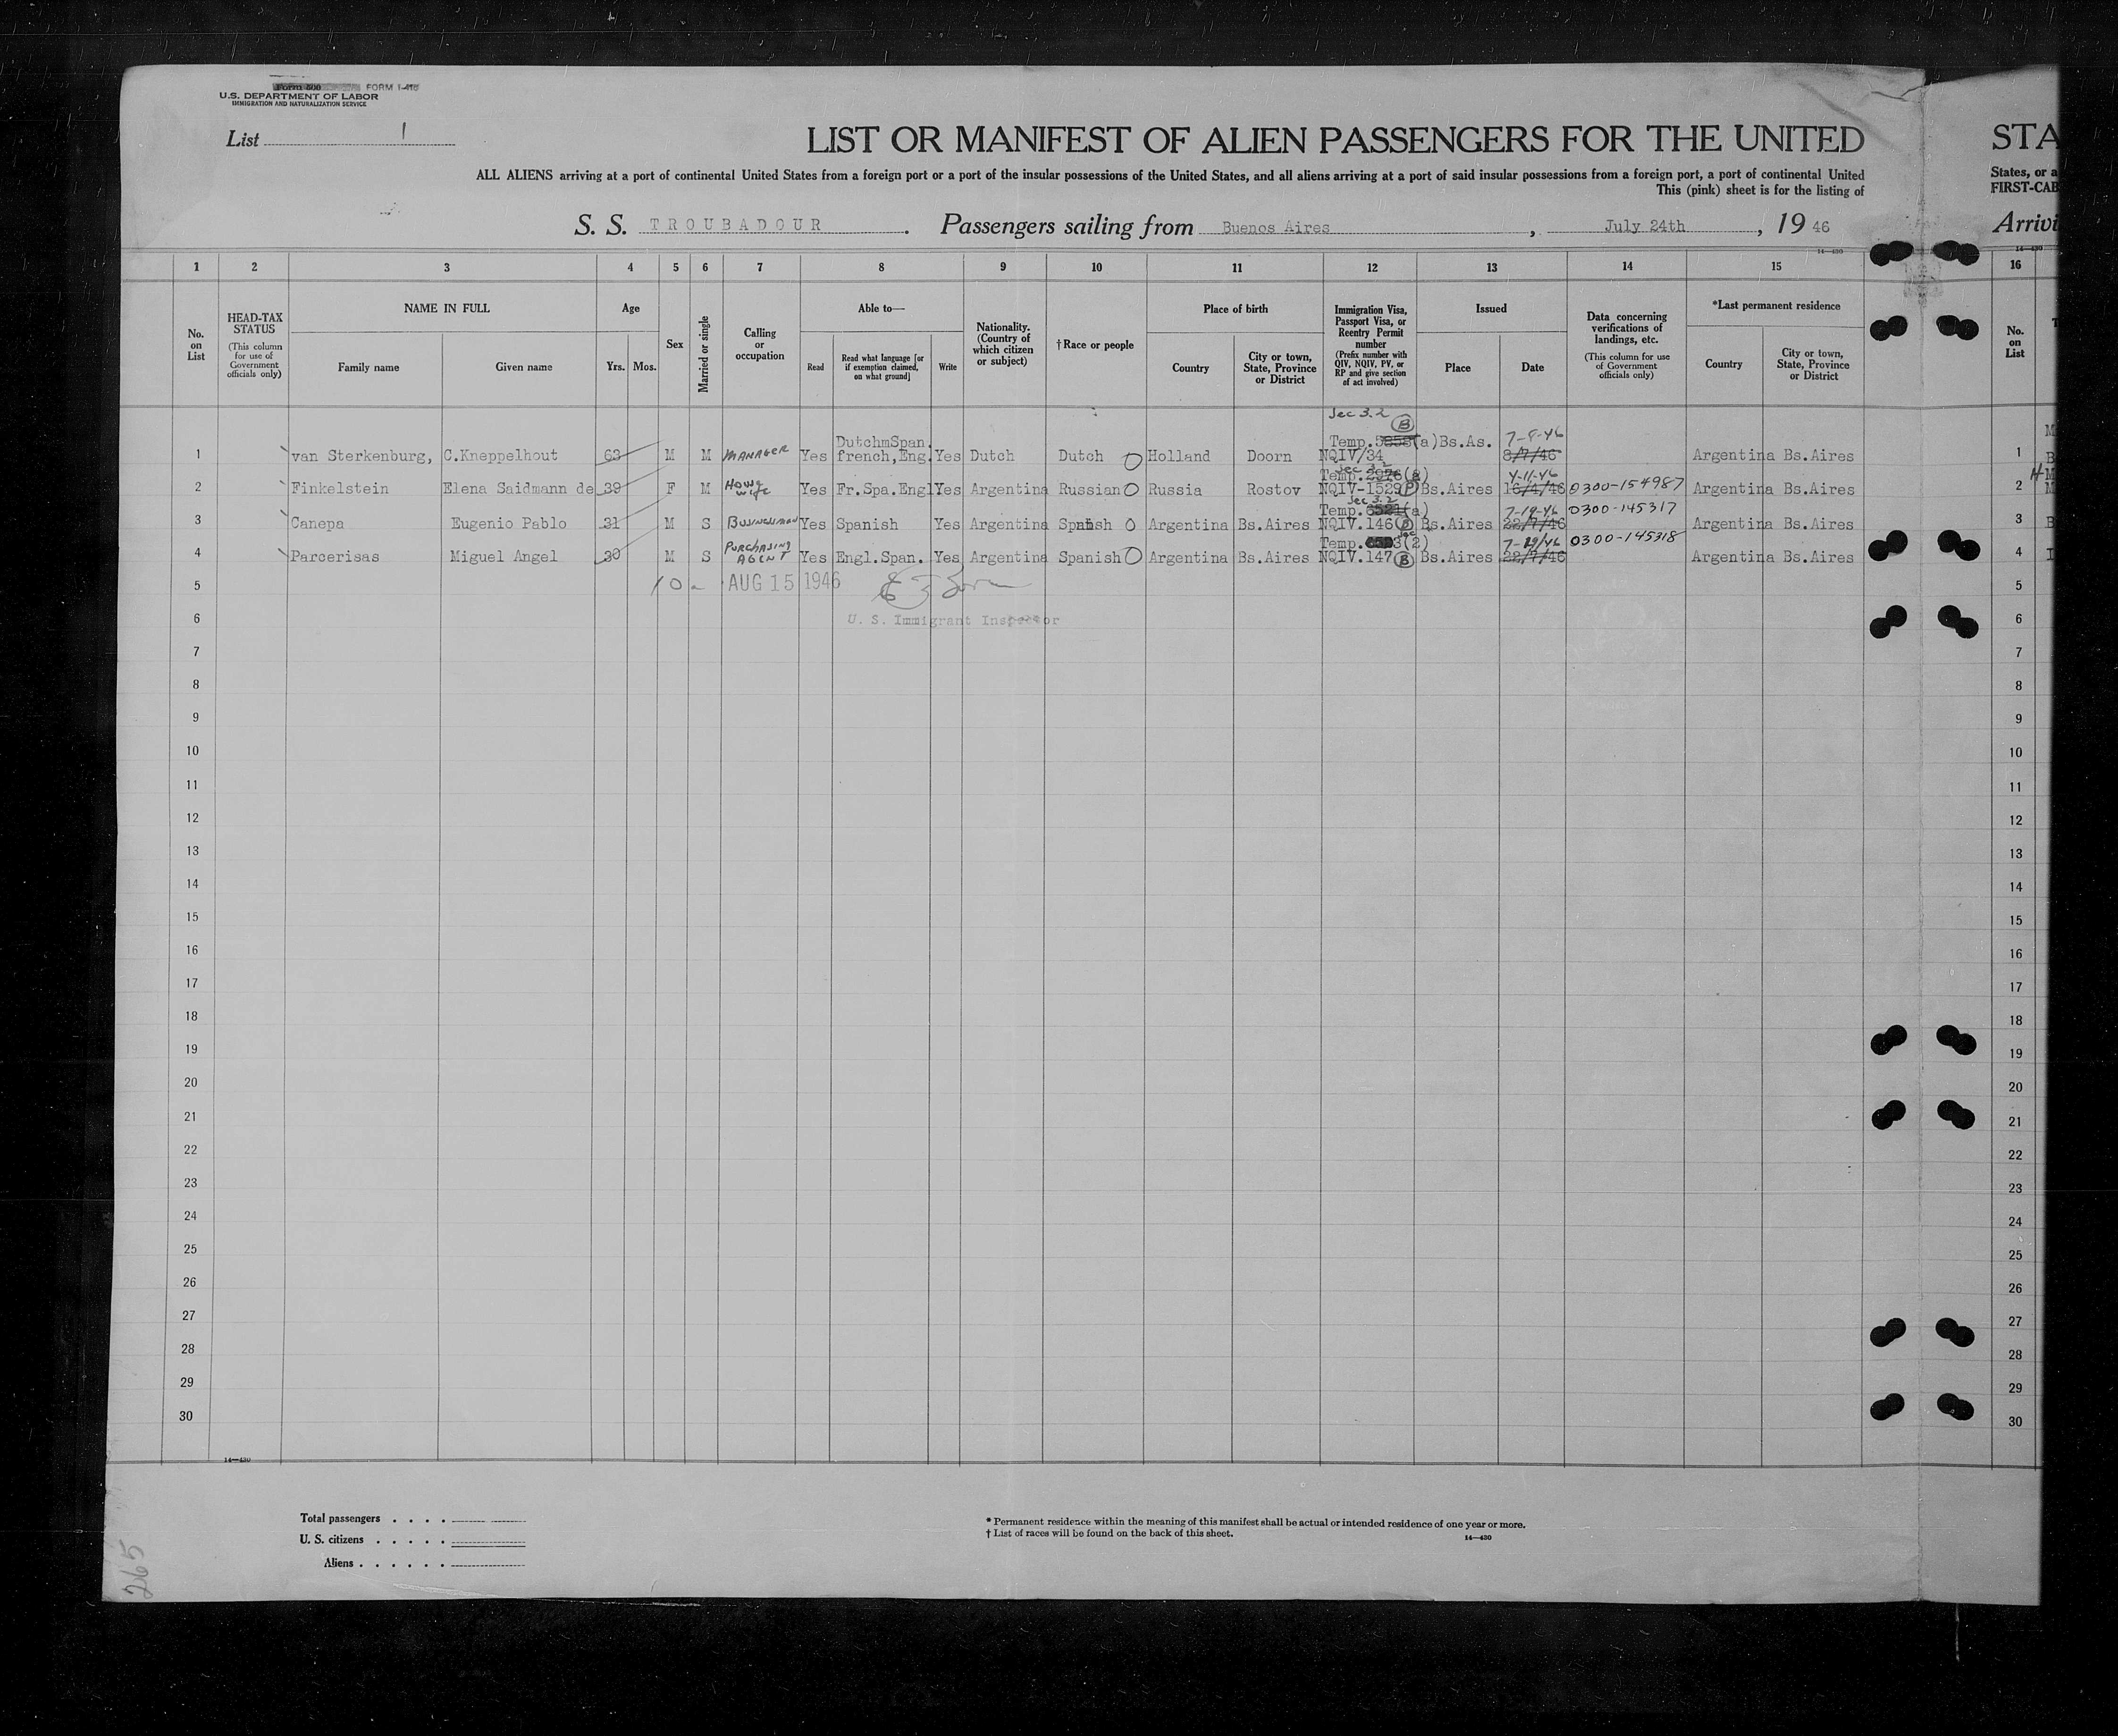 FORM I-415
U.S. DEPARTMENT OF LABOR
IMMIGRATION AND NATURALIZATION SERVICE
List 1
LIST OR MANIFEST OF ALIEN PASSENGERS FOR THE UNITED STA
ALL ALIENS arriving at a port of continental United States from a foreign port or a port of the insular possessions of the United States, and all aliens arriving at a port of said insular possessions from a foreign port, a port of continental United States, or a
This (pink) sheet is for the listing of FIRST-CAB
S. S. TROUBADOUR. Passengers sailing from Buenos Aires, July 24th, 1946 Arrivi
14—430 14—430
1 2 3 4 5 6 7 8 9 10 11 12 13 14 15 16
No. on List
HEAD-TAX STATUS (This column for use of Government officials only)
NAME IN FULL
Family name Given name
Age
Yrs. Mos.
Sex
Married or single
Calling or occupation
Able to—
Read Read what language [or if exemption claimed, on what ground] Write
Nationality. (Country of which citizen or subject)
†Race or people
Place of birth
Country City or town, State, Province or District
Immigration Visa, Passport Visa, or Reentry Permit number (Prefix number with QIV, NQIV, PV, or RP and give section of act involved)
Issued
Place Date
Data concerning verifications of landings, etc. (This column for use of Government officials only)
*Last permanent residence
Country City or town, State, Province or District
No. on List
Sec 3.2 B
DutchmSpan. Temp. (a) Bs.As. 7-8-46
1 van Sterkenburg, C.Kneppelhout 63 M M MANAGER Yes french,Eng. Yes Dutch Dutch O Holland Doorn NQIV/34 8/7/46 Argentina Bs.Aires 1
Sec 3.2 Temp. 4-11-46
2 Finkelstein Elena Saidmann de 39 F M House wife Yes Fr.Spa.Engl Yes Argentina Russian O Russia Rostov NQIV-1529 Bs.Aires 16/4/46 0300-154987 Argentina Bs.Aires 2
Sec 3.2 Temp. (a) 7-19-46 0300-145317
3 Canepa Eugenio Pablo 31 M S Businessman Yes Spanish Yes Argentina Spanish O Argentina Bs.Aires NQIV.146 Bs.Aires 22/7/46 Argentina Bs.Aires 3
Temp. 3(2) 7-29/46 0300-145318
4 Parcerisas Miguel Angel 30 M S PURCHASING AGENT Yes Engl.Span. Yes Argentina Spanish O Argentina Bs.Aires NQIV.147 B Bs.Aires 22/7/46 Argentina Bs.Aires 4
5 10- AUG 15 1946 5
6 U. S. Immigrant Inspector 6
7 7
8 8
9 9
10 10
11 11
12 12
13 13
14 14
15 15
16 16
17 17
18 18
19 19
20 20
21 21
22 22
23 23
24 24
25 25
26 26
27 27
28 28
29 29
30 30
14—430
Total passengers . . . .
U. S. citizens . . . . .
Aliens . . . . . .
* Permanent residence within the meaning of this manifest shall be actual or intended residence of one year or more.
† List of races will be found on the back of this sheet.
14—430
265